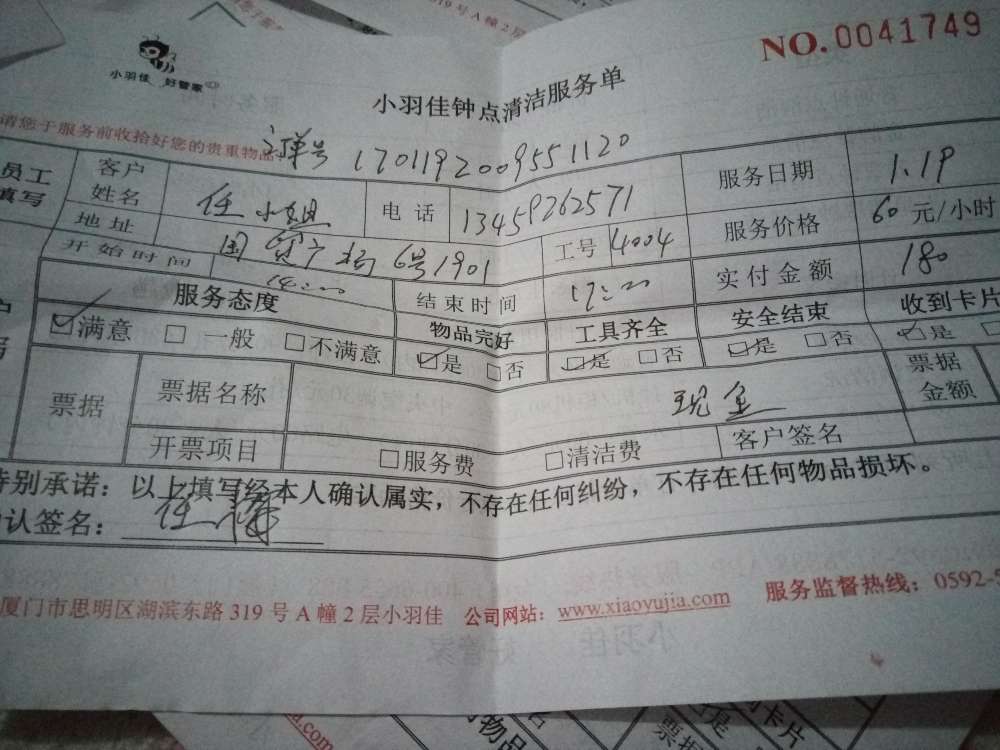 NO.0041749
小羽佳 好管家
小羽佳钟点清洁服务单
请您于服务前收拾好您的贵重物品
订单号 1701192009551120
员工填写 客户姓名 任小姐 电话 13459262571 服务日期 1.19
地址 国贸广场6号1901 工号 4004 服务价格 60 元/小时
开始时间 14:00 结束时间 17:00 实付金额 180
服务态度 物品完好 工具齐全 安全结束 收到卡片
☑满意 □一般 □不满意 ☑是 □否 ☑是 □否 ☑是 □否 ☑是
票据 票据名称 现金 票据金额
开票项目 □服务费 □清洁费 客户签名
特别承诺：以上填写经本人确认属实，不存在任何纠纷，不存在任何物品损坏。
确认签名：
厦门市思明区湖滨东路 319 号 A 幢 2 层小羽佳 公司网站：www.xiaoyujia.com 服务监督热线：0592-5